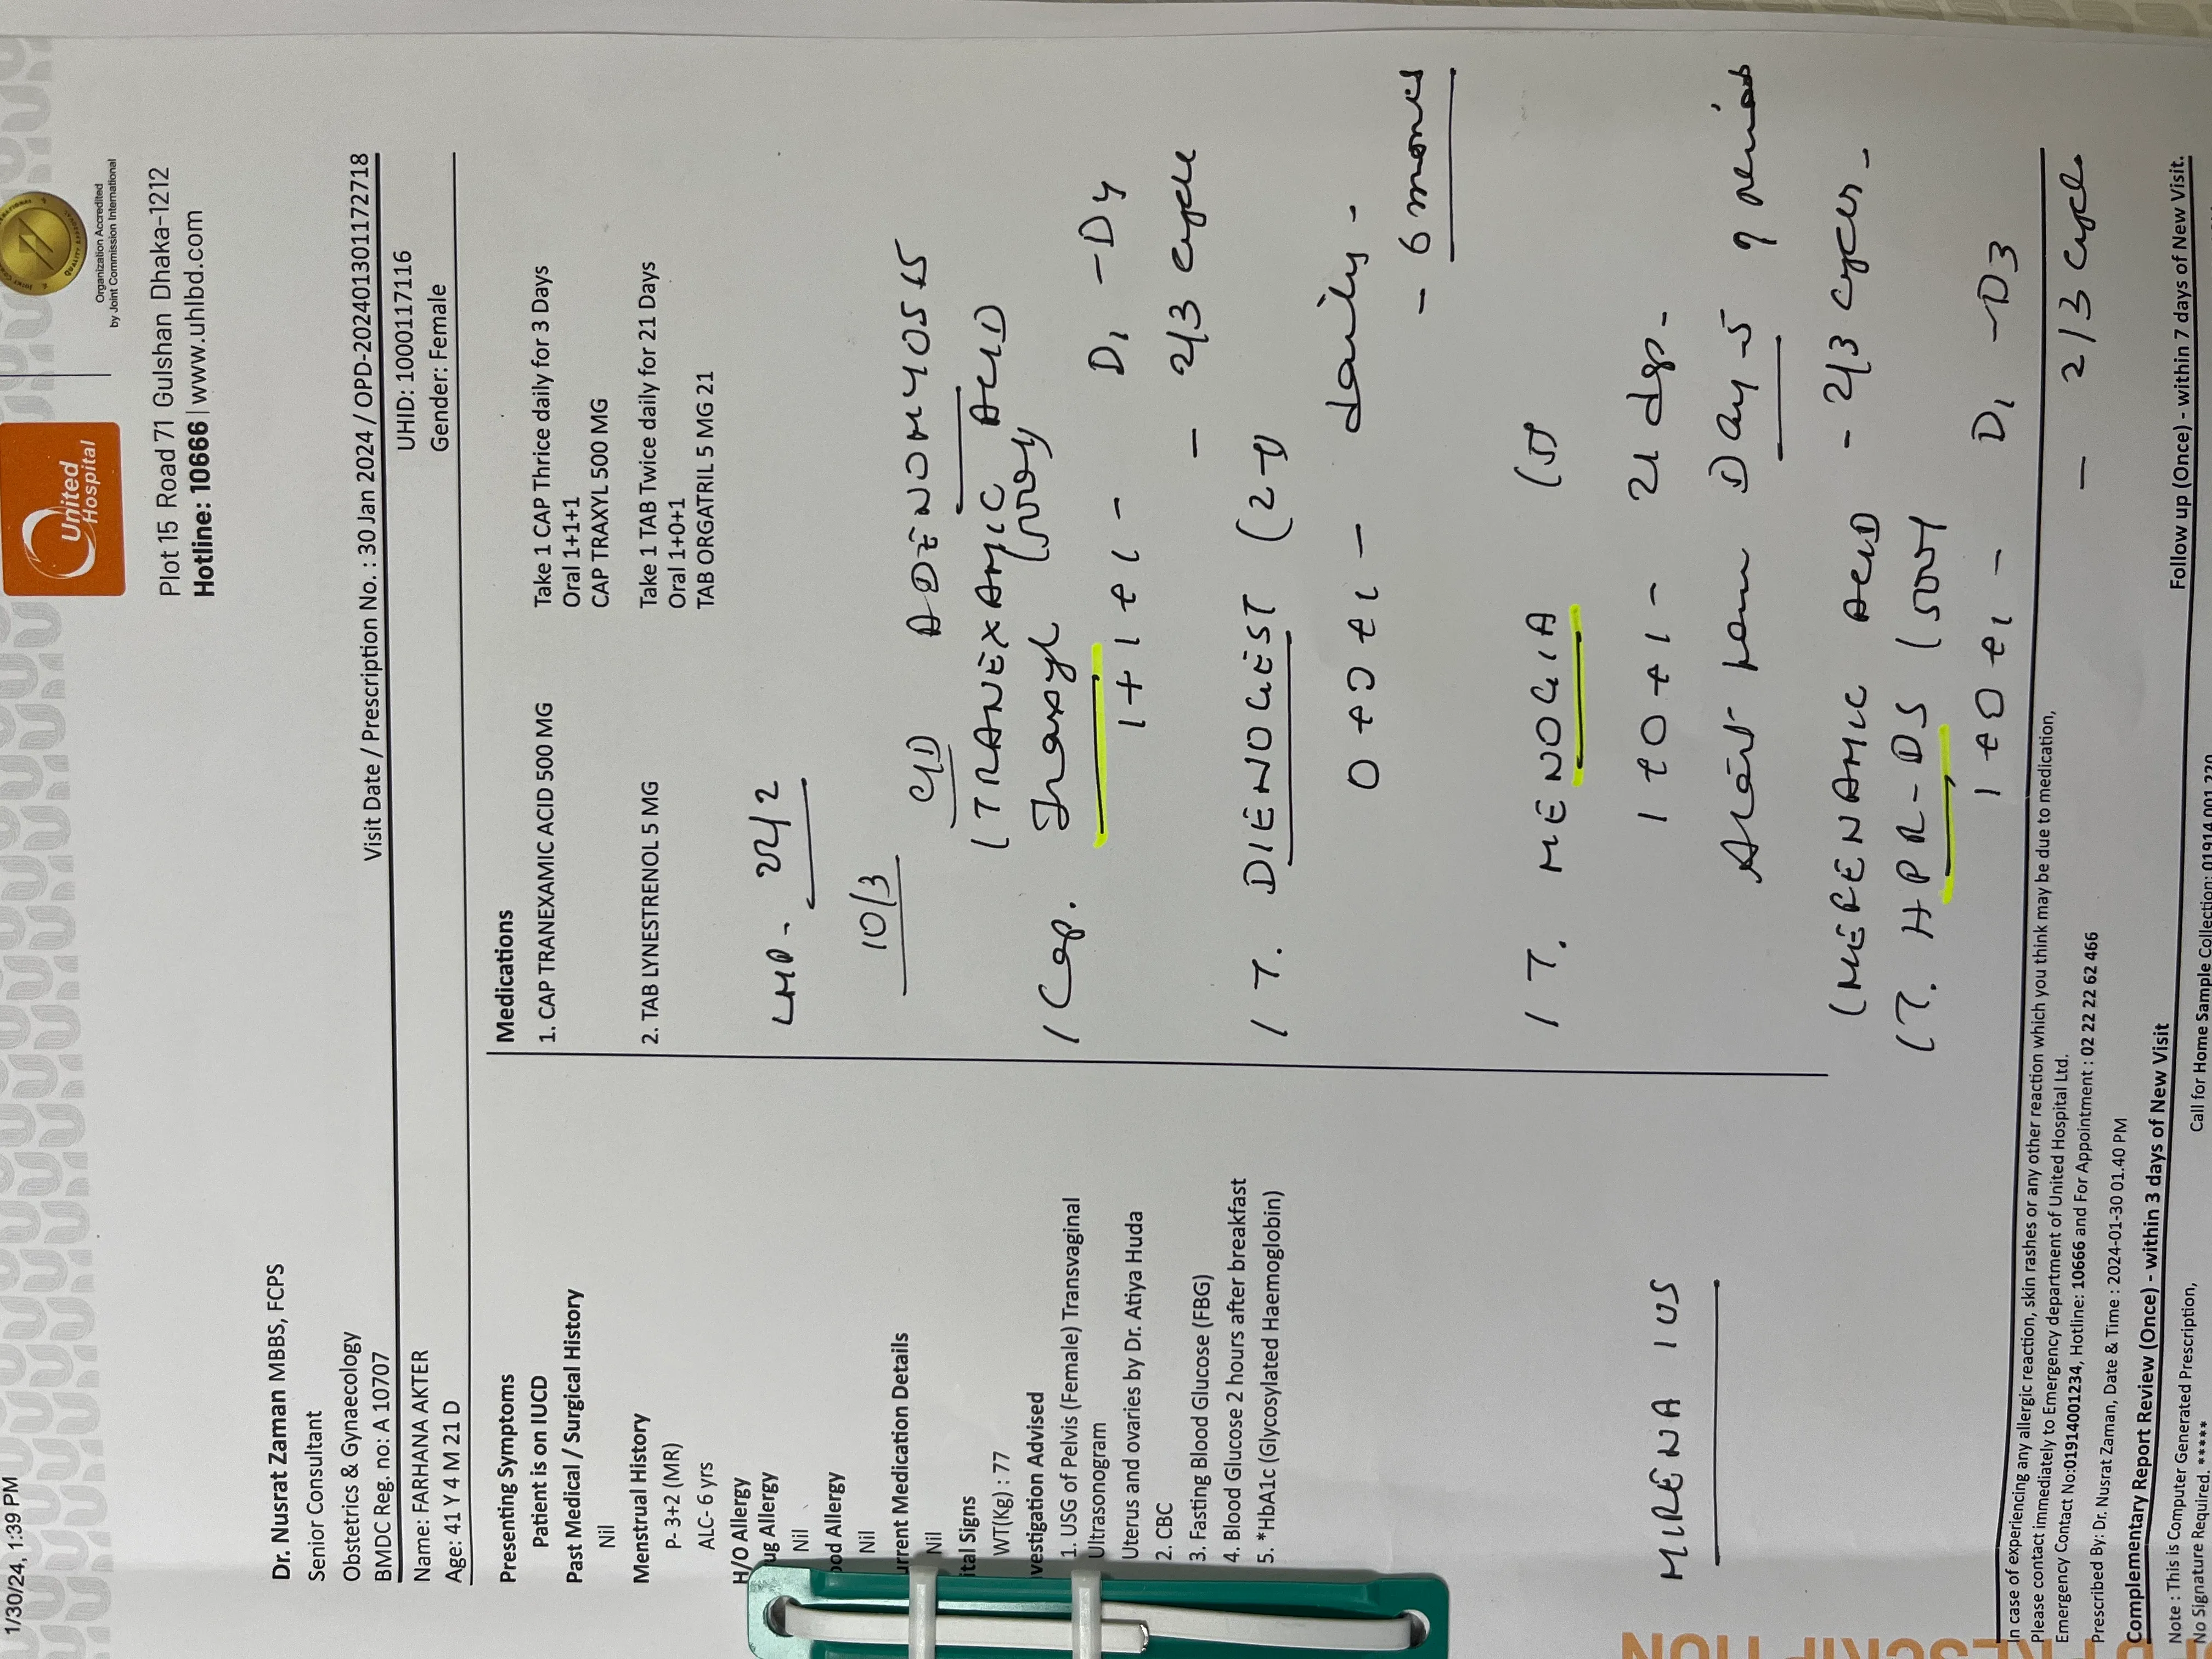 1/30/24, 1:39 PM
United
Hospital
Organization Accredited
by Joint Commission International
Plot 15 Road 71 Gulshan Dhaka-1212
Hotline: 10666 | www.uhlbd.com
Dr. Nusrat Zaman MBBS, FCPS
Senior Consultant
Obstetrics & Gynaecology
BMDC Reg. no: A 10707
Visit Date / Prescription No. : 30 Jan 2024 / OPD-202401301172718
Name: FARHANA AKTER
UHID: 1000117116
Age: 41 Y 4 M 21 D
Gender: Female
Presenting Symptoms
Patient is on IUCD
Past Medical / Surgical History
Nil
Menstrual History
P- 3+2 (MR)
ALC- 6 yrs
H/O Allergy
ug Allergy
Nil
ood Allergy
Nil
urrent Medication Details
Nil
tal Signs
WT(Kg) : 77
vestigation Advised
1. USG of Pelvis (Female) Transvaginal
Ultrasonogram
Uterus and ovaries by Dr. Atiya Huda
2. CBC
3. Fasting Blood Glucose (FBG)
4. Blood Glucose 2 hours after breakfast
5. *HbA1c (Glycosylated Haemoglobin)
MIRENA IUS
Medications
1. CAP TRANEXAMIC ACID 500 MG
Take 1 CAP Thrice daily for 3 Days
Oral 1+1+1
CAP TRAXYL 500 MG
2. TAB LYNESTRENOL 5 MG
Take 1 TAB Twice daily for 21 Days
Oral 1+0+1
TAB ORGATRIL 5 MG 21
LMP - 22/2
10/3
ADENOMYOSIS
(TRANEXAMIC ACID
1 Cap. Traxyl (500mg)
1+1+1 - D1 - D4
- 2/3 cycle
1 T. DIENOGEST (2-
0+0+1 - daily -
- 6 months
1 T. MENOGIA (5
1+0+1 - 21 days -
Start from Day-5 of periods
- 2/3 cycles -
(MEFENAMIC ACID
(T. HPR-DS (500
1+0+1 - D1 - D3
- 2/3 cycle
In case of experiencing any allergic reaction, skin rashes or any other reaction which you think may be due to medication,
Please contact immediately to Emergency department of United Hospital Ltd.
Emergency Contact No:01914001234, Hotline: 10666 and For Appointment : 02 22 22 62 466
Prescribed By: Dr. Nusrat Zaman, Date & Time : 2024-01-30 01.40 PM
Complementary Report Review (Once) - within 3 days of New Visit
Follow up (Once) - within 7 days of New Visit.
Note : This is Computer Generated Prescription,
No Signature Required. *****
Call for Home Sample Collection: 01914 001 220